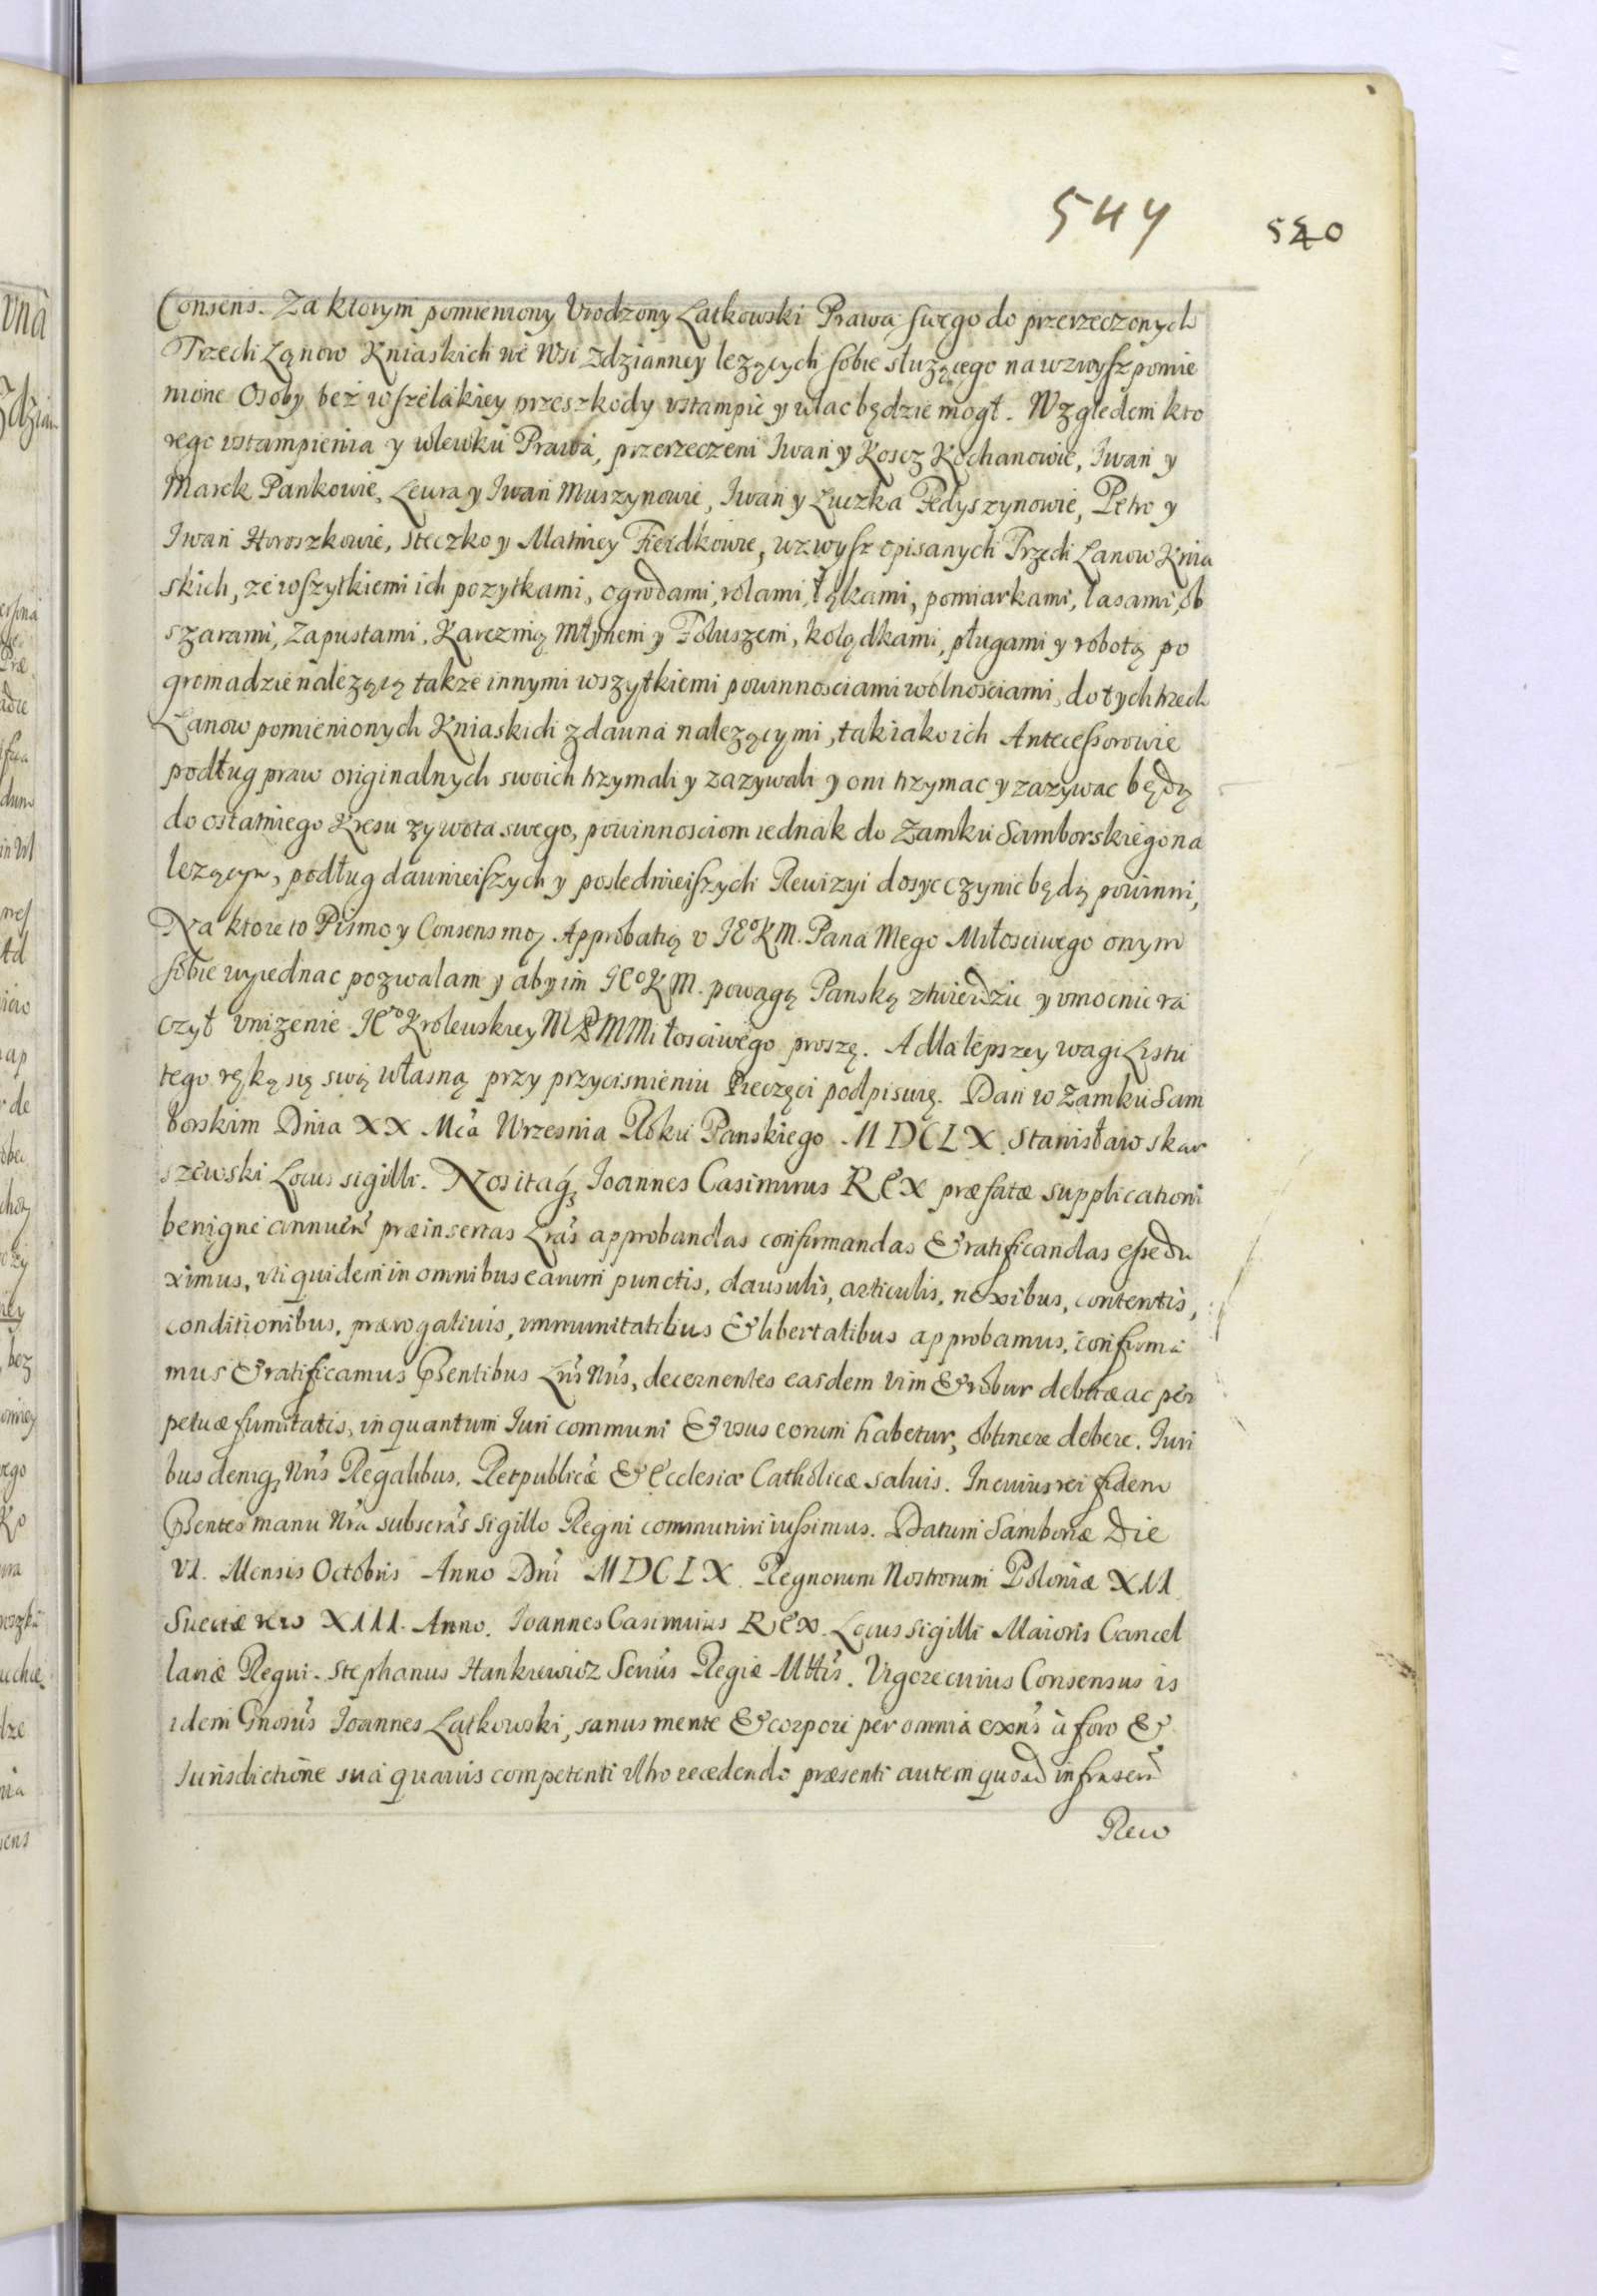 544 540
Consens. Za ktorym pomieniony Vrodzony Latkowski Prawa swego do przerzeczonych
Trzech Lanow Kniaskich we Wsi Zdzianney lezących sobie słuzącego na wzwysz pomie
nione Osoby bez wszelakiey przeszkody vstampic y wlac będzie mogł. Względem kto
rego vstampienia y wlewku Prawa, przerzeczeni Iwan y Koscz Kochanowie, Iwan y
Marek Pankowie, Leura y Iwan Muszynowie, Iwan y Luczka Fedyszynowie, Petro y
Iwan Horoszkowie, Steczko y Matwiey Fiedkowie, wzwysz opisanych Trzech Lanow Knia
skich, ze wszytkiemi ich pozytkami, ogrodami, rolami, łąkami, pomiarkami, lasami, ob
szarami, Zapustami, Karczmą Młynem y Foluszem, kolądkami, pługami y robotą po
gromadzie nalezącą takze innymi wszytkiemi powinnosciami wolnosciami, do tych trzech
Lanow pomienionych Kniaskich zdawna nalezącymi, tak iako ich Antecessorowie
podług praw originalnych swoich trzymali y zazywali y oni trzymac y zazywac będą
do ostatniego Kresu zywota swego, powinnosciom iednak do Zamku Samborskiego na
lezącym, podług dawnieiszych y poslednieiszych Rewizyi dosyc czynic będą powinni,
Na ktore to Pismo y Consens moy Approbatią v IE⁰KM. Pana Mego Miłosciwego onym
sobie wyiednac pozwalam y aby im IE⁰KM. powagą Panską ztwierdzic y vmocnic ra
czył vnizenie IE⁰ Krolewskiey M P M Miłosciwego proszę. A dla lepszey wagi Listu
tego ręką się swą własną przy przycisnieniu Pieczęci podpisuię. Dan w Zamku Sam
borskim Dnia XX Mca Wrzesnia Roku Panskiego MDCLX. Stanisław Skar
szewski Locus sigilli. Nos itaq; Ioannes Casimirus REX præfatæ supplicationi
benigne annuen̄ præinsertas Lr̄as approbandas confirmandas & ratificandas esse du
ximus, vti quidem in omnibus earum punctis, clausulis, articulis, nexibus, contentis,
conditionibus, prærogatiuis, immunitatibus & libertatibus approbamus, confirma
mus & ratificamus Pn̄tibus Lr̄is Nr̄is, decernentes easdem vim & robur debitæ ac per
petuæ firmitatis, in quantum Iuri communi & vsus eorum habetur, obtinere debere. Iuri
bus deniq; Nr̄is Regalibus, Reipublicæ & Ecclesiæ Catholicæ saluis. In cuius rei fidem
Pn̄tes manu Nr̄a subscr̄as sigillo Regni communiri iussimus. Datum Samboriæ Die
VI. Mensis Octobris Anno Dni MDCLX. Regnorum Nostrorum Poloniæ XII
Sueciæ vero XIII. Anno. Ioannes Casimirus REX. Locus sigilli Maioris Cancel
lariæ Regni. Stephanus Hankiewicz Secr̄us Regiæ Mttis. Vigore cuius Consensus is
idem Gnosus Ioannes Latkowski, sanus mente & corpore per omnia exn̄s à foro &
Iurisdictione sua quauis competenti vltro recedendo præsenti autem quoad infrascr̄
Rew